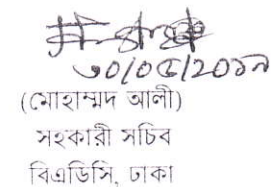 ৩০/০৫/২০১৯
(মোহাম্মদ আলী)
সহকারী সচিব
বিএডিসি, ঢাকা